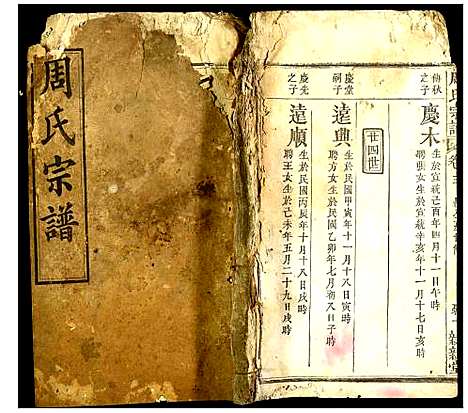 周氏宗譜
周氏宗譜
卷
傳秋
之子
慶木
生於宣統己酉年四月十一日午時
聘張女生於宣統辛亥年十一月十七日亥時
廿四世
慶堂
嗣子
達興
生於民國甲寅年十一月十八日寅時
聘方女生於民國乙卯年七月初八日時
慶先
之子
達順
生於民國丙辰年十月十八日戌時
聘王女生於己未年五月二十九日戌時